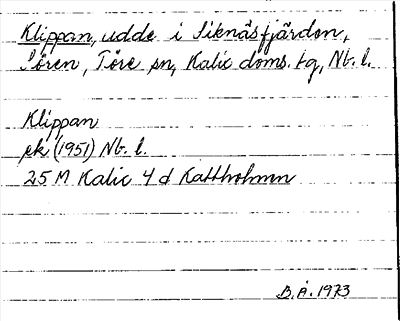 Klippan, udde i Siknäsfjärden,
Sören, Töre sn, Kalix doms. tg, Nb. l.
Klippan
ek (1951) Nb. l.
25 M Kalix 4 d Kattholmen
B.Å. 1973